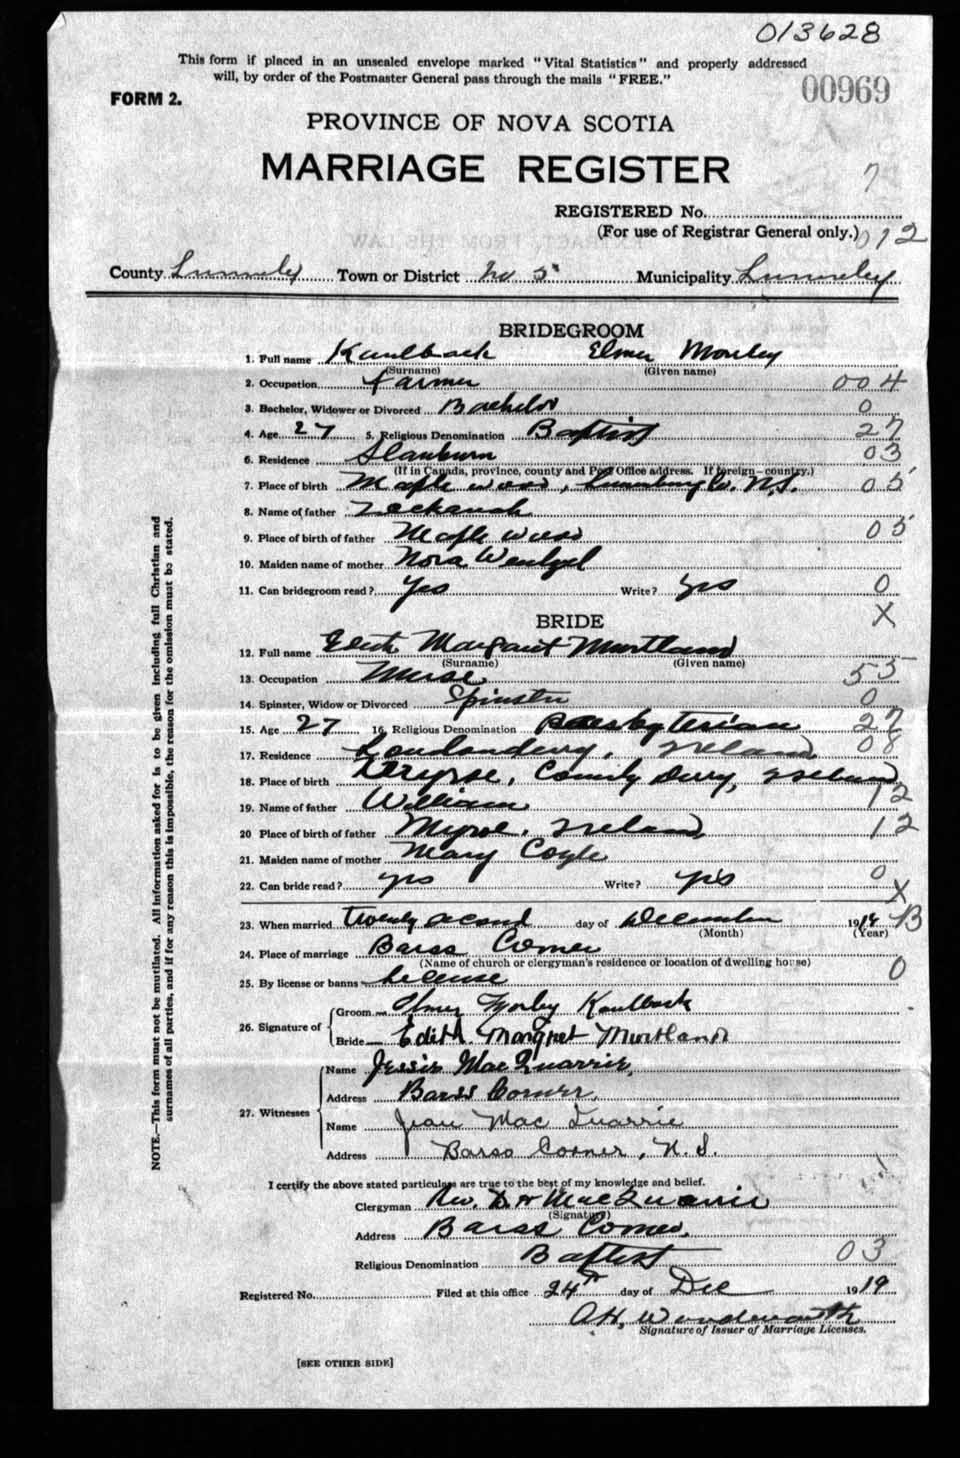 013628
This form if placed in an unsealed envelope marked "Vital Statistics" and properly addressed
will, by order of the Postmaster General pass through the mails "FREE."
00969
FORM 2.
PROVINCE OF NOVA SCOTIA
MARRIAGE REGISTER
7
REGISTERED No.
(For use of Registrar General only.) 012
County Town or District No 5 Municipality
BRIDEGROOM
1. Full name Kaulback Elmer
(Surname) (Given name)
2. Occupation Farmer 004
3. Bachelor, Widower or Divorced Bachelor 0
4. Age 27 5. Religious Denomination Baptist 27
6. Residence 03
(If in Canada, province, county and Post Office address. If foreign—country.)
7. Place of birth Maplewood, Lunenburg Co. N.S. 05
8. Name of father
9. Place of birth of father Maplewood 05
10. Maiden name of mother Nora Wentzel
11. Can bridegroom read? Yes Write? Yes 0
X
BRIDE
12. Full name Edith Margaret Murtland
(Surname) (Given name)
13. Occupation Nurse 55
14. Spinster, Widow or Divorced Spinster 0
15. Age 27 16. Religious Denomination Presbyterian 27
17. Residence Londonderry, Ireland 08
18. Place of birth County Derry, Ireland
19. Name of father William 12
20 Place of birth of father Ireland 12
21. Maiden name of mother Mary Coyle
22. Can bride read? yes Write? yes 0
X
23. When married twenty second day of December 1919 B
(Month) (Year)
24. Place of marriage Barss Corner
(Name of church or clergyman's residence or location of dwelling house)
25. By license or banns License 0
26. Signature of Groom Elmer Kaulback
Bride Edith Margret Murtland
27. Witnesses Name Jessie MacQuarrie
Address Barss Corner,
Name Jean MacQuarrie
Address Barss Corner, N.S.
I certify the above stated particulars are true to the best of my knowledge and belief.
Clergyman Rev. D. MacQuarrie
(Signature)
Address Barss Corner,
Religious Denomination Baptist 03
Registered No. Filed at this office 24th day of Dec 1919
Signature of Issuer of Marriage Licenses.
[SEE OTHER SIDE]
NOTE.—This form must not be mutilated. All information asked for is to be given including full Christian and
surnames of all parties, and if for any reason this is impossible, the reason for the omission must be stated.